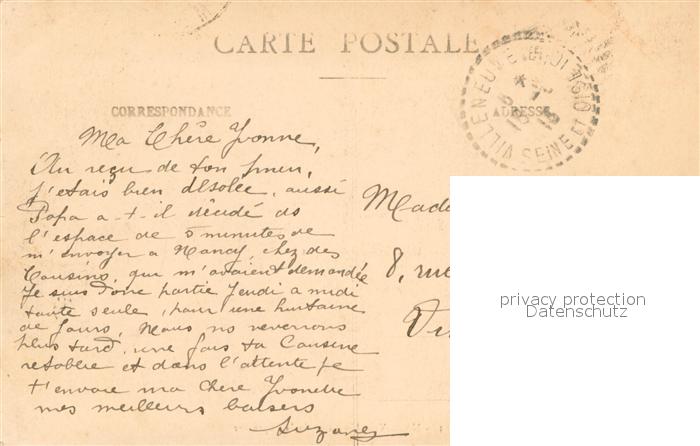 CARTE POSTALE
CORRESPONDANCE
ADRESSE
VILLENEUVE
SEINE ET
Ma Chère Yvonne,
Au reçu de ton pneu,
j'etais bien désolée, aussi
Papa a-t-il décidé ds
l'espace de 5 minutes de
m'envoyer a Nancy, chez des
Cousins, qui m'avaient demandée
Je suis donc partie Jeudi a midi
toute seule, pour une huitaine
de jours, Nous ns reverrons
plus tard, une fois ta Cousine
retablie et dans l'attente je
t'envoie ma chère Yvonne
mes meilleurs baisers
Suzanne
8, rue
privacy protection
Datenschutz